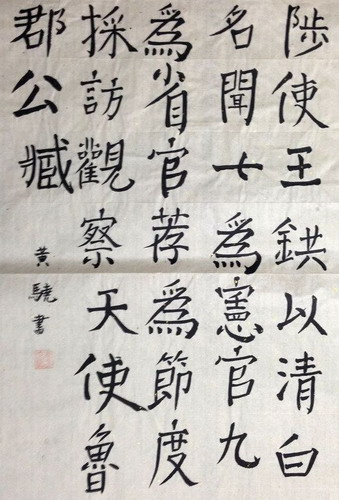 陟使王鉷以清白
名聞七為憲官九
為省官荐為節度
採訪觀察天使魯
郡公臧
黄驍書